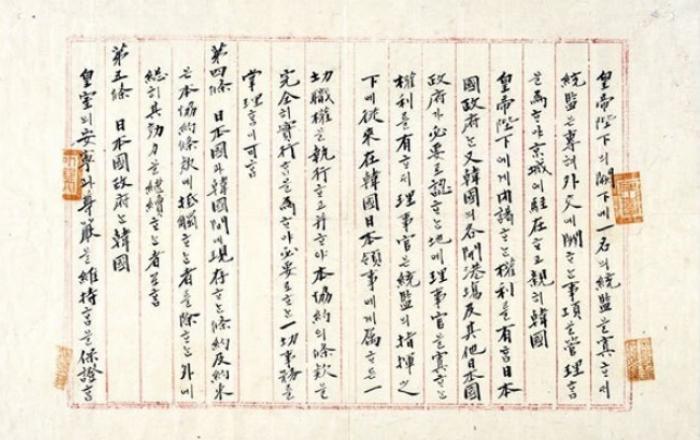 皇帝陛下의 闕下에 一名의 統監을 寘ᄒᆞ되
統監은 專혀 外交에 關ᄒᆞᄂᆞᆫ 事項을 管理홈
을 爲ᄒᆞ야 京城에 駐在ᄒᆞ고 親히 韓國
皇帝陛下에게 內謁ᄒᆞᄂᆞᆫ 權利를 有홈 日本
國政府ᄂᆞᆫ 又 韓國의 各開港場及其他日本國
政府가 必要로 認ᄒᆞᄂᆞᆫ 地에 理事官을 寘ᄒᆞᄂᆞᆫ
權利를 有호되 理事官은 統監의 指揮之
下에 從來在韓國日本領事에게 屬ᄒᆞ든 一
切職權을 執行ᄒᆞ고 并ᄒᆞ야 本協約의 條款을
完全히 實行홈을 爲ᄒᆞ야 必要로 ᄒᆞᄂᆞᆫ 一切事務를
掌理홈이 可홈
第四條 日本國과 韓國間에 現存ᄒᆞᄂᆞᆫ 條約及約束
은 本協約條款에 抵觸ᄒᆞᄂᆞᆫ 者를 除ᄒᆞᄂᆞᆫ 外에
總히 其效力을 繼續ᄒᆞᄂᆞᆫ 者로 홈
第五條 日本國政府ᄂᆞᆫ 韓國
皇室의 安寧과 尊嚴을 維持홈을 保證홈